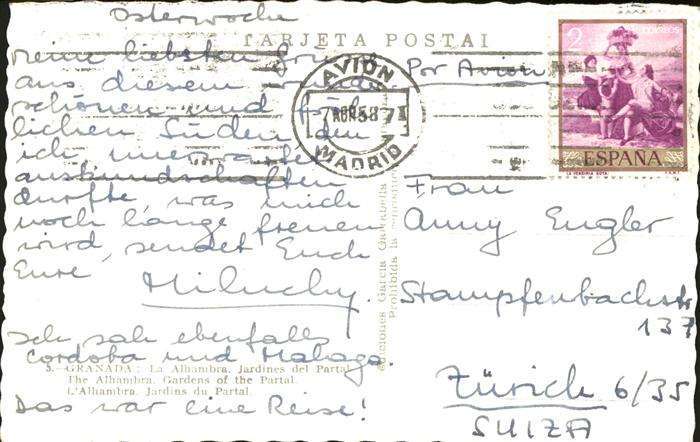 Osterwoche
TARJETA POSTAL
Meine liebsten
aus diesem
schönen und
lichen Süden den
ich, unerwartet
auskundschaften
durfte, was mich
noch lange freuen
wird, sendet Euch
Eure
Miluchy.
Ich sah ebenfalls
Cordoba und Malaga.
5.- GRANADA: La Alhambra. Jardines del Partal.
The Alhambra. Gardens of the Partal.
L'Alhambra. Jardins du Partal.
Das war eine Reise!
AVION
7 ABR 58 7
MADRID
Por Avion
2 CORREOS
ESPAÑA
LA VENDIMIA GOYA. F.N.M.T.
Garcia Garrabella
Prohibida la
Frau
Anny Engler
Stampfenbachstr
137
Zürich 6/35
SUIZA